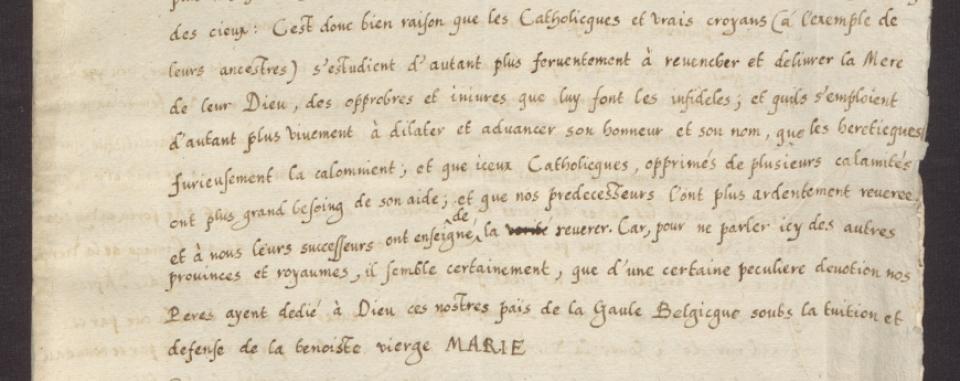 des cieux: C'est donc bien raison que les Catholicques et vrais croyans (à l'exemple de
leurs ancestres) s'estudient d'autant plus feruentement à reuencher et deliurer la Mere
de leur Dieu, des opprobres et iniures que luy font les infideles; et quils s'emploient
d'autant plus viuement à dilater et aduancer son honneur et son nom, que les hereticques
furieusement la calomnient; et que iceux Catholicques, opprimés de plusieurs calamités
ont plus grand besoing de son aide; et que nos predecesseurs l'ont plus ardentement reueree
et à nous leurs successeurs ont enseigné de la reuerer. Car, pour ne parler icy des autres
prouinces et royaumes, il semble certainement, que d'une certaine peculiere deuotion nos
Peres ayent dedié à Dieu ces nostres païs de la Gaule Belgicque soubs la tuition et
defense de la benoiste vierge MARIE